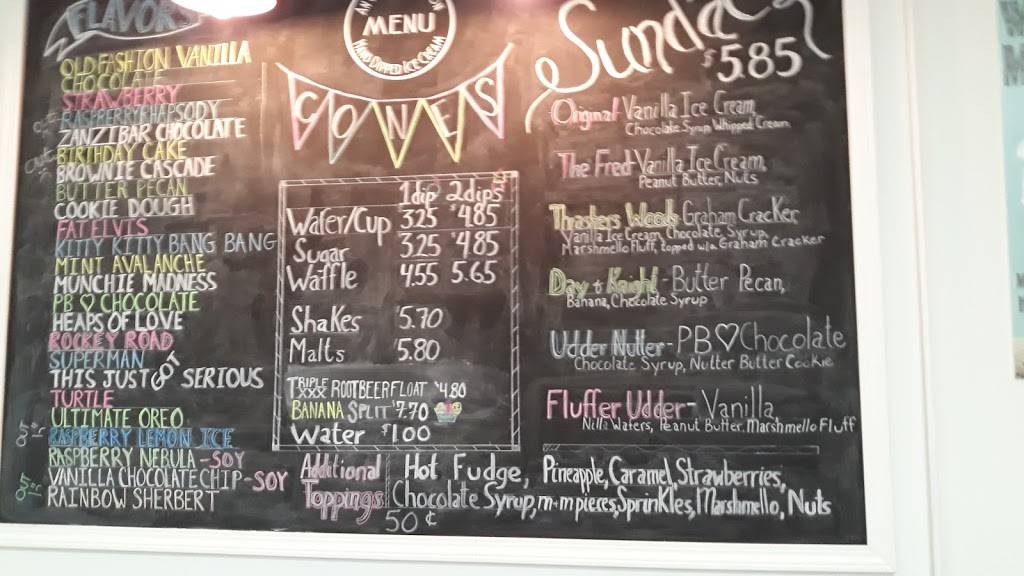 FLAVORS
OLD FASHION VANILLA
CHOCOLATE
STRAWBERRY
RASPBERRY RHAPSODY
ZANZIBAR CHOCOLATE
BIRTHDAY CAKE
BROWNIE CASCADE
BUTTER PECAN
COOKIE DOUGH
FAT ELVIS
KITTY KITTY BANG BANG
MINT AVALANCHE
MUNCHIE MADNESS
PB ♡ CHOCOLATE
HEAPS OF LOVE
ROCKEY ROAD
SUPERMAN
THIS JUST GOT SERIOUS
TURTLE
ULTIMATE OREO
RASPBERRY LEMON ICE
RASPBERRY NEBULA - SOY
VANILLA CHOCOLATE CHIP - SOY
RAINBOW SHERBERT
MENU
HAND DIPPED ICE CREAM
CONES
1dip 2dips
Wafer/Cup 3.25 $4.85
Sugar 3.25 $4.85
Waffle 4.55 5.65
Shakes 5.70
Malts 5.80
TRIPLE XXX ROOTBEER FLOAT $4.80
BANANA SPLIT $7.70
Water $1.00
Sundae
$5.85
Original - Vanilla Ice Cream,
Chocolate Syrup Whipped Cream
The Fred - Vanilla Ice Cream,
Peanut Butter, Nuts
Thrashers Woods - Graham Cracker,
Vanilla Ice Cream, Chocolate Syrup,
Marshmello Fluff, topped w/a Graham Cracker
Day & Knight - Butter Pecan,
Banana, Chocolate Syrup
Udder Nutter - PB ♡ Chocolate
Chocolate Syrup, Nutter Butter Cookie
Fluffer Udder - Vanilla,
Nilla Waters, Peanut Butter, Marshmello Fluff
Additional Toppings 50¢
Hot Fudge, Pineapple, Caramel, Strawberries,
Chocolate Syrup, m+m pieces, Sprinkles, Marshmello, Nuts